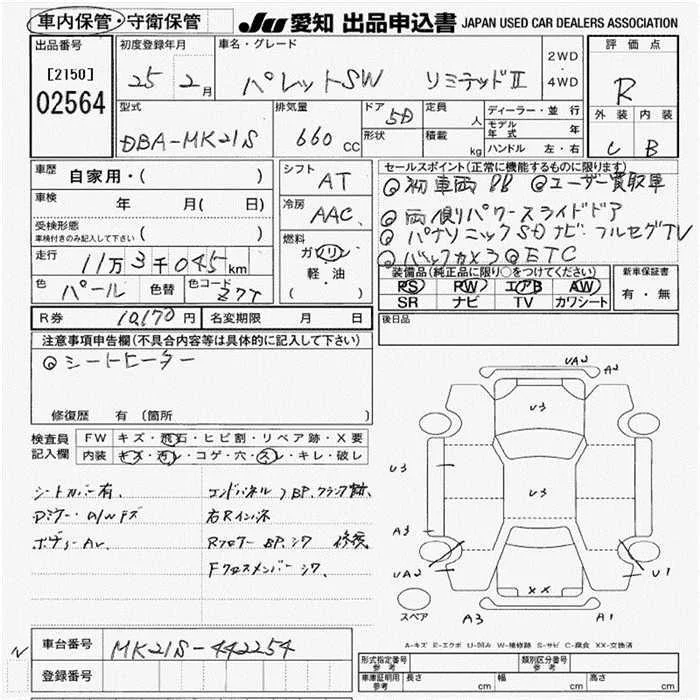 車内保管・守衛保管 JU 愛知 出品申込書 JAPAN USED CAR DEALERS ASSOCIATION
出品番号 初度登録年月 車名・グレード 評価点
[2150] 25 2月 パレットSW リミテッドⅡ 2WD・4WD R
02564 型式 排気量 ドア 5D 定員 人 ディーラー・並行 外装 内装
DBA-MK21S 660cc 形状 積載 kg モデル年式 年 C B
ハンドル 左・右
車歴 自家用・( ) シフト AT セールスポイント(正常に機能するものに限ります)
車検 年 月( 日) 冷房 AAC 初車両 ユーザー買取車
受検形態 両側パワースライドドア
車検付きのみ記入して下さい ( ) 燃料 パナソニックSDナビ フルセグTV
走行 11万3千045km ガソリン バックカメラ ETC
色 パール 色替 色コード Z7T 軽・油 ( )
装備品(純正品に限り○をつけてください) 新車保証書
PS PW エアB AW 有・無
SR ナビ TV カワシート
R券 10,170円 名変期限 月 日 後日品
注意事項申告欄(不具合内容等は具体的に記入して下さい)
シートヒーター
修復歴 有 (箇所
検査員記入欄 FW キズ・飛石・ヒビ割・リペア跡・X要
内装 キズ・汚レ・コゲ・穴・スレ・キレ・破レ
シートカバー有、 エンドパネルフBP、クランプ跡、
Dミラー・
ボディーAU、 Rフロアー BP、シワ 修復
Fクロスメンバーシワ、
UA2 A2
U3
U3 U3
A3
UA2 U1
XX
スペア A3 A1
A-キズ E-エクボ U-凹み W-補修跡 S-サビ C-腐食 XX-交換済
N 車台番号 MK21S-442254
登録番号
形式指定番号 参考 類別区分番号 参考
車庫証明用 参考 長さ cm 幅 cm 高さ cm